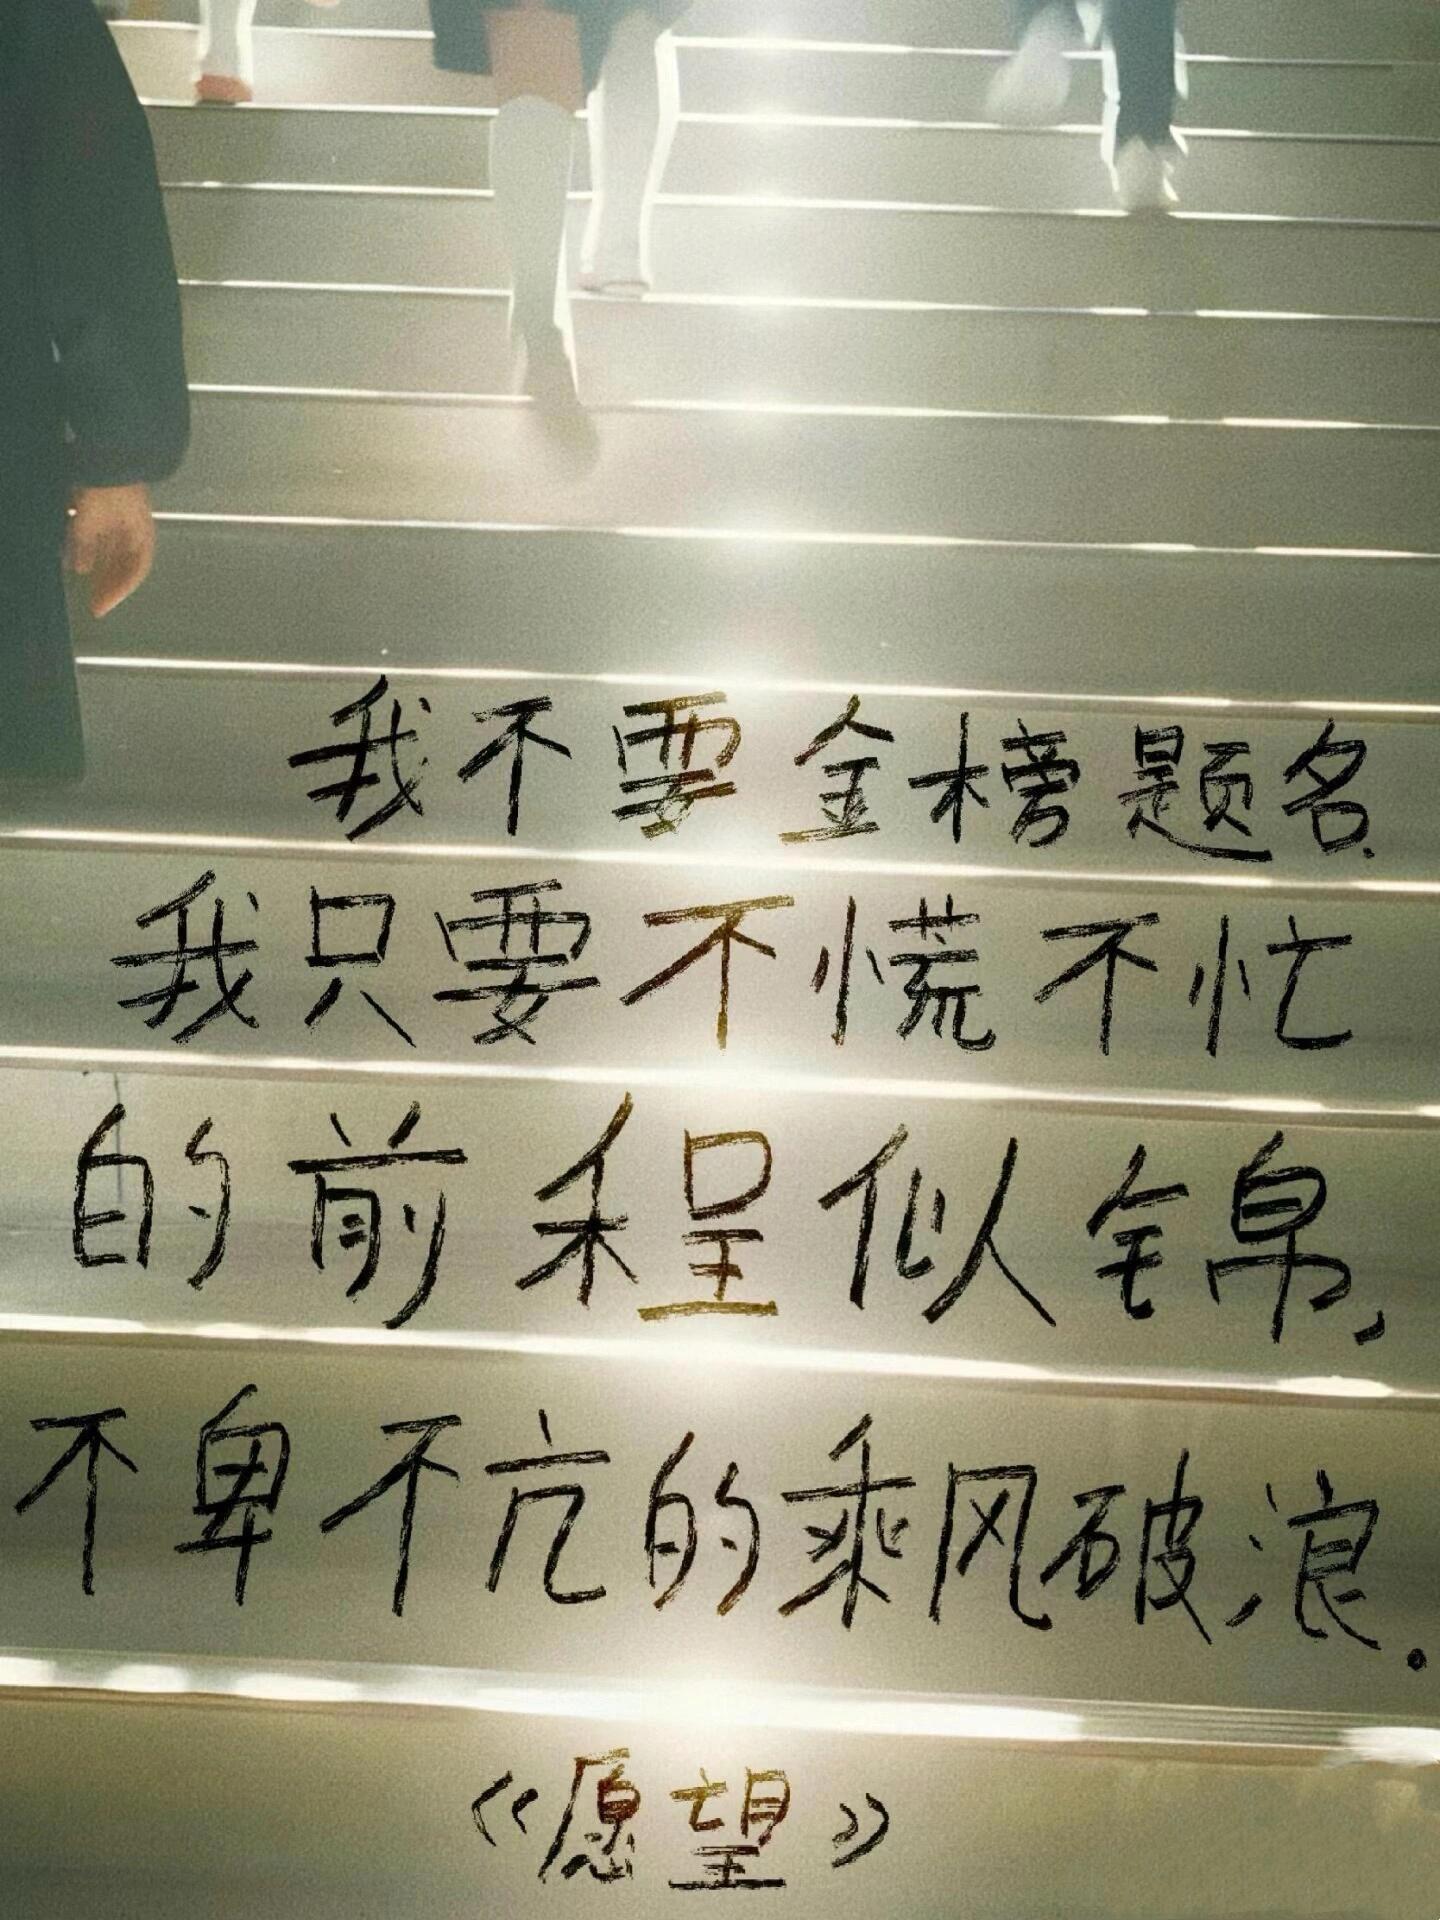 我不要金榜题名.
我只要不慌不忙
的前程似锦,
不卑不亢的乘风破浪.
《愿望》